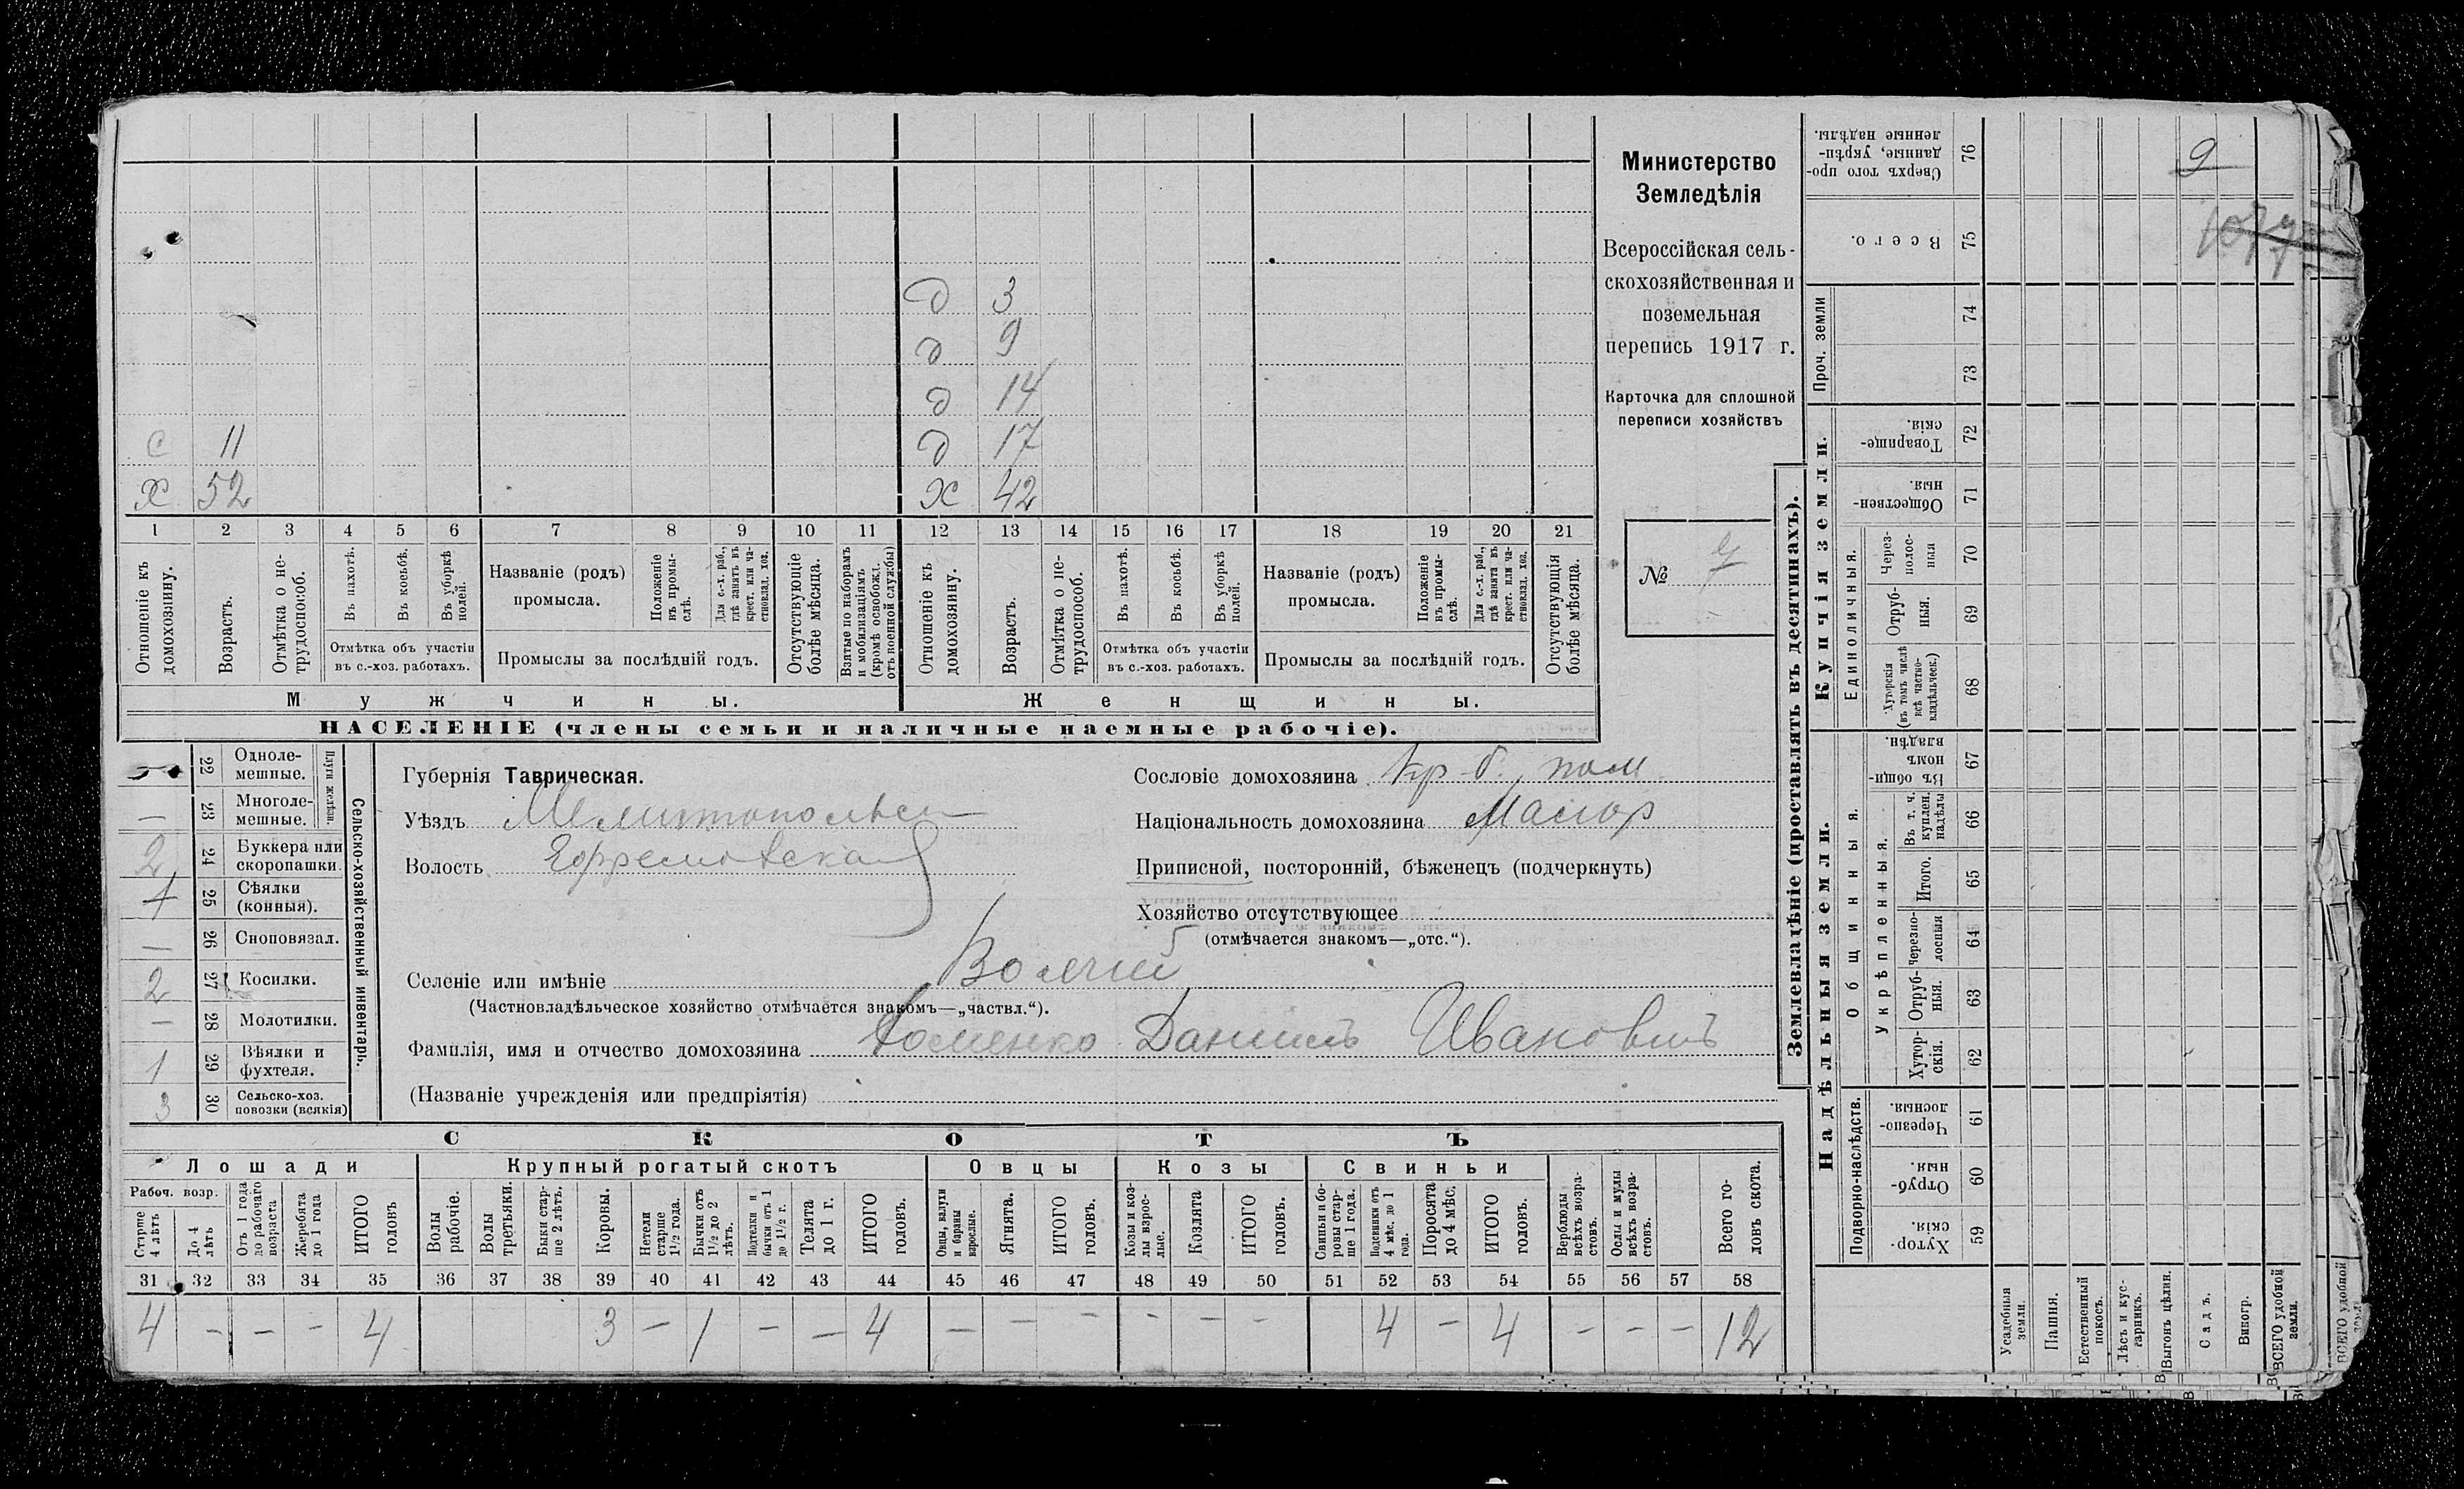 Министерство
Земледѣлія
Всероссійская сель-
скохозяйственная и
поземельная
перепись 1917 г.
Карточка для сплошной
переписи хозяйствъ
№ 7
д 3
д 9
д 14
с 11 д 17
х 52 х 42
1 2 3 4 5 6 7 8 9 10 11 12 13 14 15 16 17 18 19 20 21
Отношеніе къ домохозяину.
Возрастъ.
Отмѣтка о не-трудоспособ.
Въ пахотѣ.
Въ косьбѣ.
Въ уборкѣ полей.
Отмѣтка объ участіи
въ с.-хоз. работахъ.
Названіе (родъ)
промысла.
Положеніе въ промы-слѣ.
Для с.-х. раб., гдѣ занятъ въ крест. или ча-стновлад. хоз.
Промыслы за послѣдній годъ.
Отсутствующіе болѣе мѣсяца.
Взятые по наборамъ и мобилизаціямъ (кромѣ освобожд. отъ военной службы)
Отношеніе къ домохозяину.
Возрастъ.
Отмѣтка о не-трудоспособ.
Въ пахотѣ.
Въ косьбѣ.
Въ уборкѣ полей.
Отмѣтка объ участіи
въ с.-хоз. работахъ.
Названіе (родъ)
промысла.
Положеніе въ промы-слѣ.
Для с.-х. раб., гдѣ занята въ крест. или ча-стновлад. хоз.
Промыслы за послѣдній годъ.
Отсутствующія болѣе мѣсяца.
Мужчины. Женщины.
НАСЕЛЕНІЕ (члены семьи и наличные наемные рабочіе).
Сельско-хозяйственный инвентарь.
Плуги желѣзн.
22 Одноле-мешные.
— 23 Многоле-мешные.
2 24 Буккера или скоропашки.
1 25 Сѣялки (конныя).
— 26 Сноповязал.
2 27 Косилки.
— 28 Молотилки.
1 29 Вѣялки и фухтеля.
3 30 Сельско-хоз. повозки (всякія)
Губернія Таврическая.
Уѣздъ Мелитопольск
Волость Ефремовская
Сословіе домохозяина кр-б.
Національность домохозяина Малор
Приписной, посторонній, бѣженецъ (подчеркнуть)
Хозяйство отсутствующее
(отмѣчается знакомъ—„отс.“).
Селеніе или имѣніе
(Частновладѣльческое хозяйство отмѣчается знакомъ—„частвл.“).
Фамилія, имя и отчество домохозяина Хоменко Даниилъ Ивановичъ
(Названіе учрежденія или предпріятія)
СКОТЪ
Лошади Крупный рогатый скотъ Овцы Козы Свиньи
Рабоч. возр.
Старше 4 лѣтъ
До 4 лѣтъ
Отъ 1 года до рабочаго возраста
Жеребята до 1 года
ИТОГО головъ
Волы рабочіе.
Волы третьяки.
Быки стар-ше 2 лѣтъ.
Коровы.
Нетели старше 1½ года.
Бычки отъ 1½ до 2 лѣтъ.
Подтелки и бычки отъ 1 до 1½ г.
Телята до 1 г.
ИТОГО головъ.
Овцы, валухи и бараны взрослые.
Ягнята.
ИТОГО головъ.
Козы и коз-лы взрос-лые.
Козлята
ИТОГО головъ.
Свиньи и бо-ровы стар-ше 1 года.
Подсвинки отъ 4 мѣс. до 1 года.
Поросята до 4 мѣс.
ИТОГО головъ.
Верблюды всѣхъ возра-стовъ.
Ослы и мулы всѣхъ возра-стовъ.
Всего го-ловъ скота.
31 32 33 34 35 36 37 38 39 40 41 42 43 44 45 46 47 48 49 50 51 52 53 54 55 56 57 58
4 — — — 4 3 — 1 — — 4 — — — — — — 4 — 4 — — — 12
Землевладѣніе (проставлять въ десятинахъ).
Купчія земли.
Надѣльныя земли.
Сверхъ того про-данные, укрѣп-ленные надѣлы. 76
Всего. 75
Проч. земли
74
73
Товарище-скія. 72
Обществен-ныя. 71
Единоличныя.
Через-полос-ныя 70
Отруб-ныя. 69
Хуторскія (въ томъ числѣ всѣ частно-владѣльческ.) 68
Общинныя.
Въ общин-номъ владѣн. 67
Укрѣпленныя.
Въ т. ч. куплен. надѣлы 66
Итого. 65
Черезпо-лосныя 64
Отруб-ныя. 63
Хутор-скія. 62
Подворно-наслѣдств.
Черезпо-лосныя. 61
Отруб-ныя. 60
Хутор-скія. 59
Усадебныя земли.
Пашня.
Естественный покосъ.
Лѣсъ и кус-тарникъ.
Выгонъ цѣлин.
Садъ.
Виногр.
ВСЕГО удобной земли.
ВСЕГО удобной
9